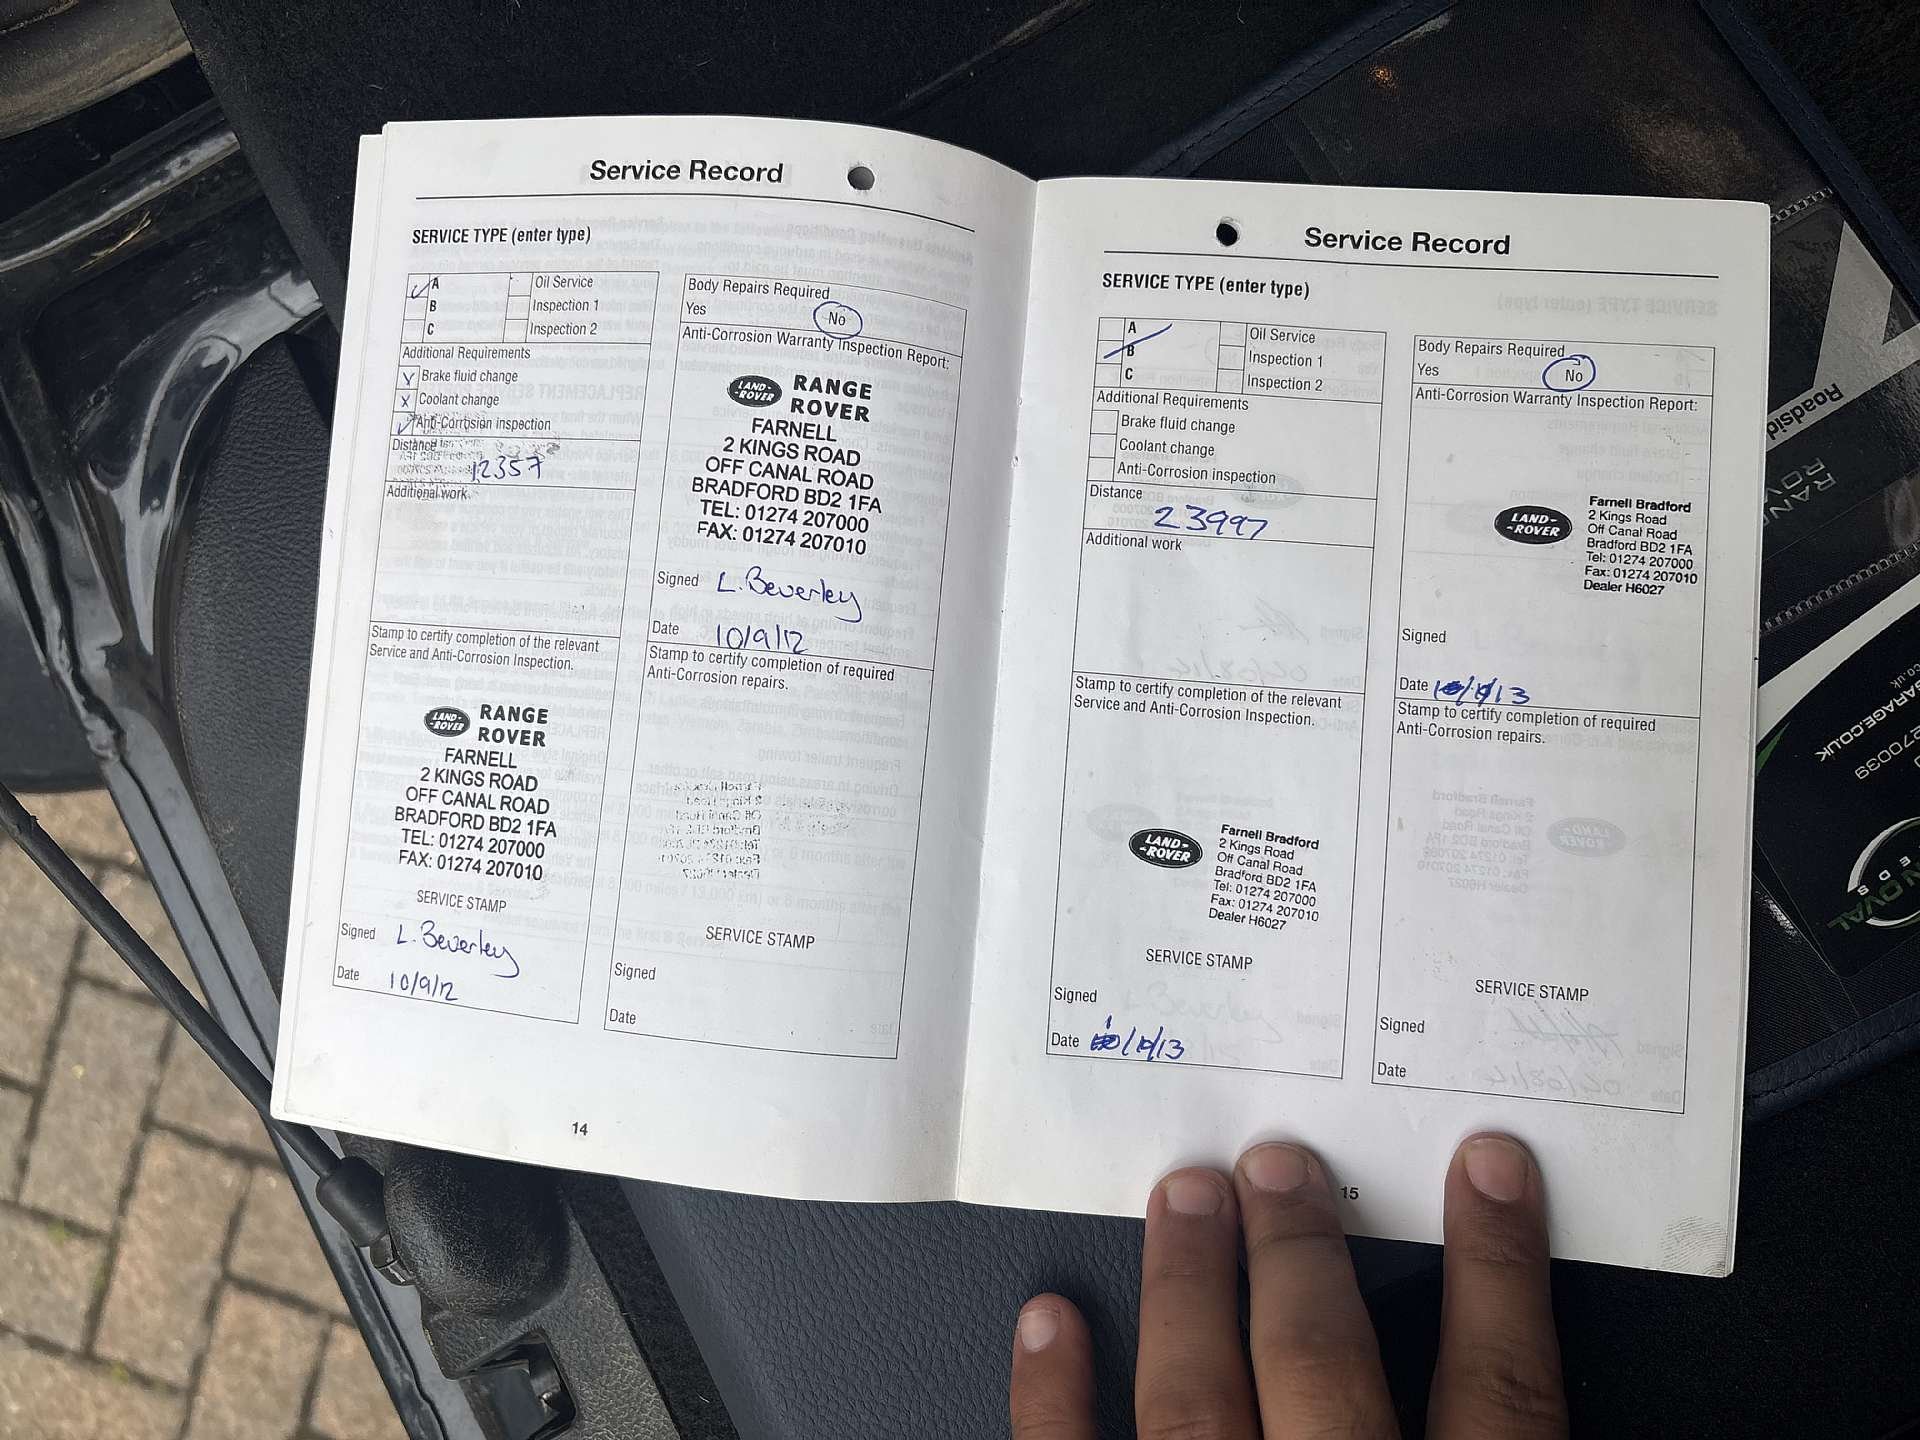 Service Record
SERVICE TYPE (enter type)
✓ A
B
C
Oil Service
Inspection 1
Inspection 2
Additional Requirements
X Brake fluid change
X Coolant change
✓ Anti-Corrosion inspection
Distance
12357
Additional work
Stamp to certify completion of the relevant
Service and Anti-Corrosion Inspection.
LAND-ROVER
RANGE
ROVER
FARNELL
2 KINGS ROAD
OFF CANAL ROAD
BRADFORD BD2 1FA
TEL: 01274 207000
FAX: 01274 207010
SERVICE STAMP
Signed L. Beverley
Date 10/9/12
Body Repairs Required
Yes No
Anti-Corrosion Warranty Inspection Report:
LAND-ROVER
RANGE
ROVER
FARNELL
2 KINGS ROAD
OFF CANAL ROAD
BRADFORD BD2 1FA
TEL: 01274 207000
FAX: 01274 207010
Signed L. Beverley
Date 10/9/12
Stamp to certify completion of required
Anti-Corrosion repairs.
SERVICE STAMP
Signed
Date
14
Service Record
SERVICE TYPE (enter type)
A
B
C
Oil Service
Inspection 1
Inspection 2
Additional Requirements
Brake fluid change
Coolant change
Anti-Corrosion inspection
Distance
23997
Additional work
Stamp to certify completion of the relevant
Service and Anti-Corrosion Inspection.
LAND-ROVER
Farnell Bradford
2 Kings Road
Off Canal Road
Bradford BD2 1FA
Tel: 01274 207000
Fax: 01274 207010
Dealer H6027
SERVICE STAMP
Signed
Date
Body Repairs Required
Yes No
Anti-Corrosion Warranty Inspection Report:
LAND-ROVER
Farnell Bradford
2 Kings Road
Off Canal Road
Bradford BD2 1FA
Tel: 01274 207000
Fax: 01274 207010
Dealer H6027
Signed
Date
Stamp to certify completion of required
Anti-Corrosion repairs.
SERVICE STAMP
Signed
Date
15
Roadsid
GARAGE.CO.UK
270039